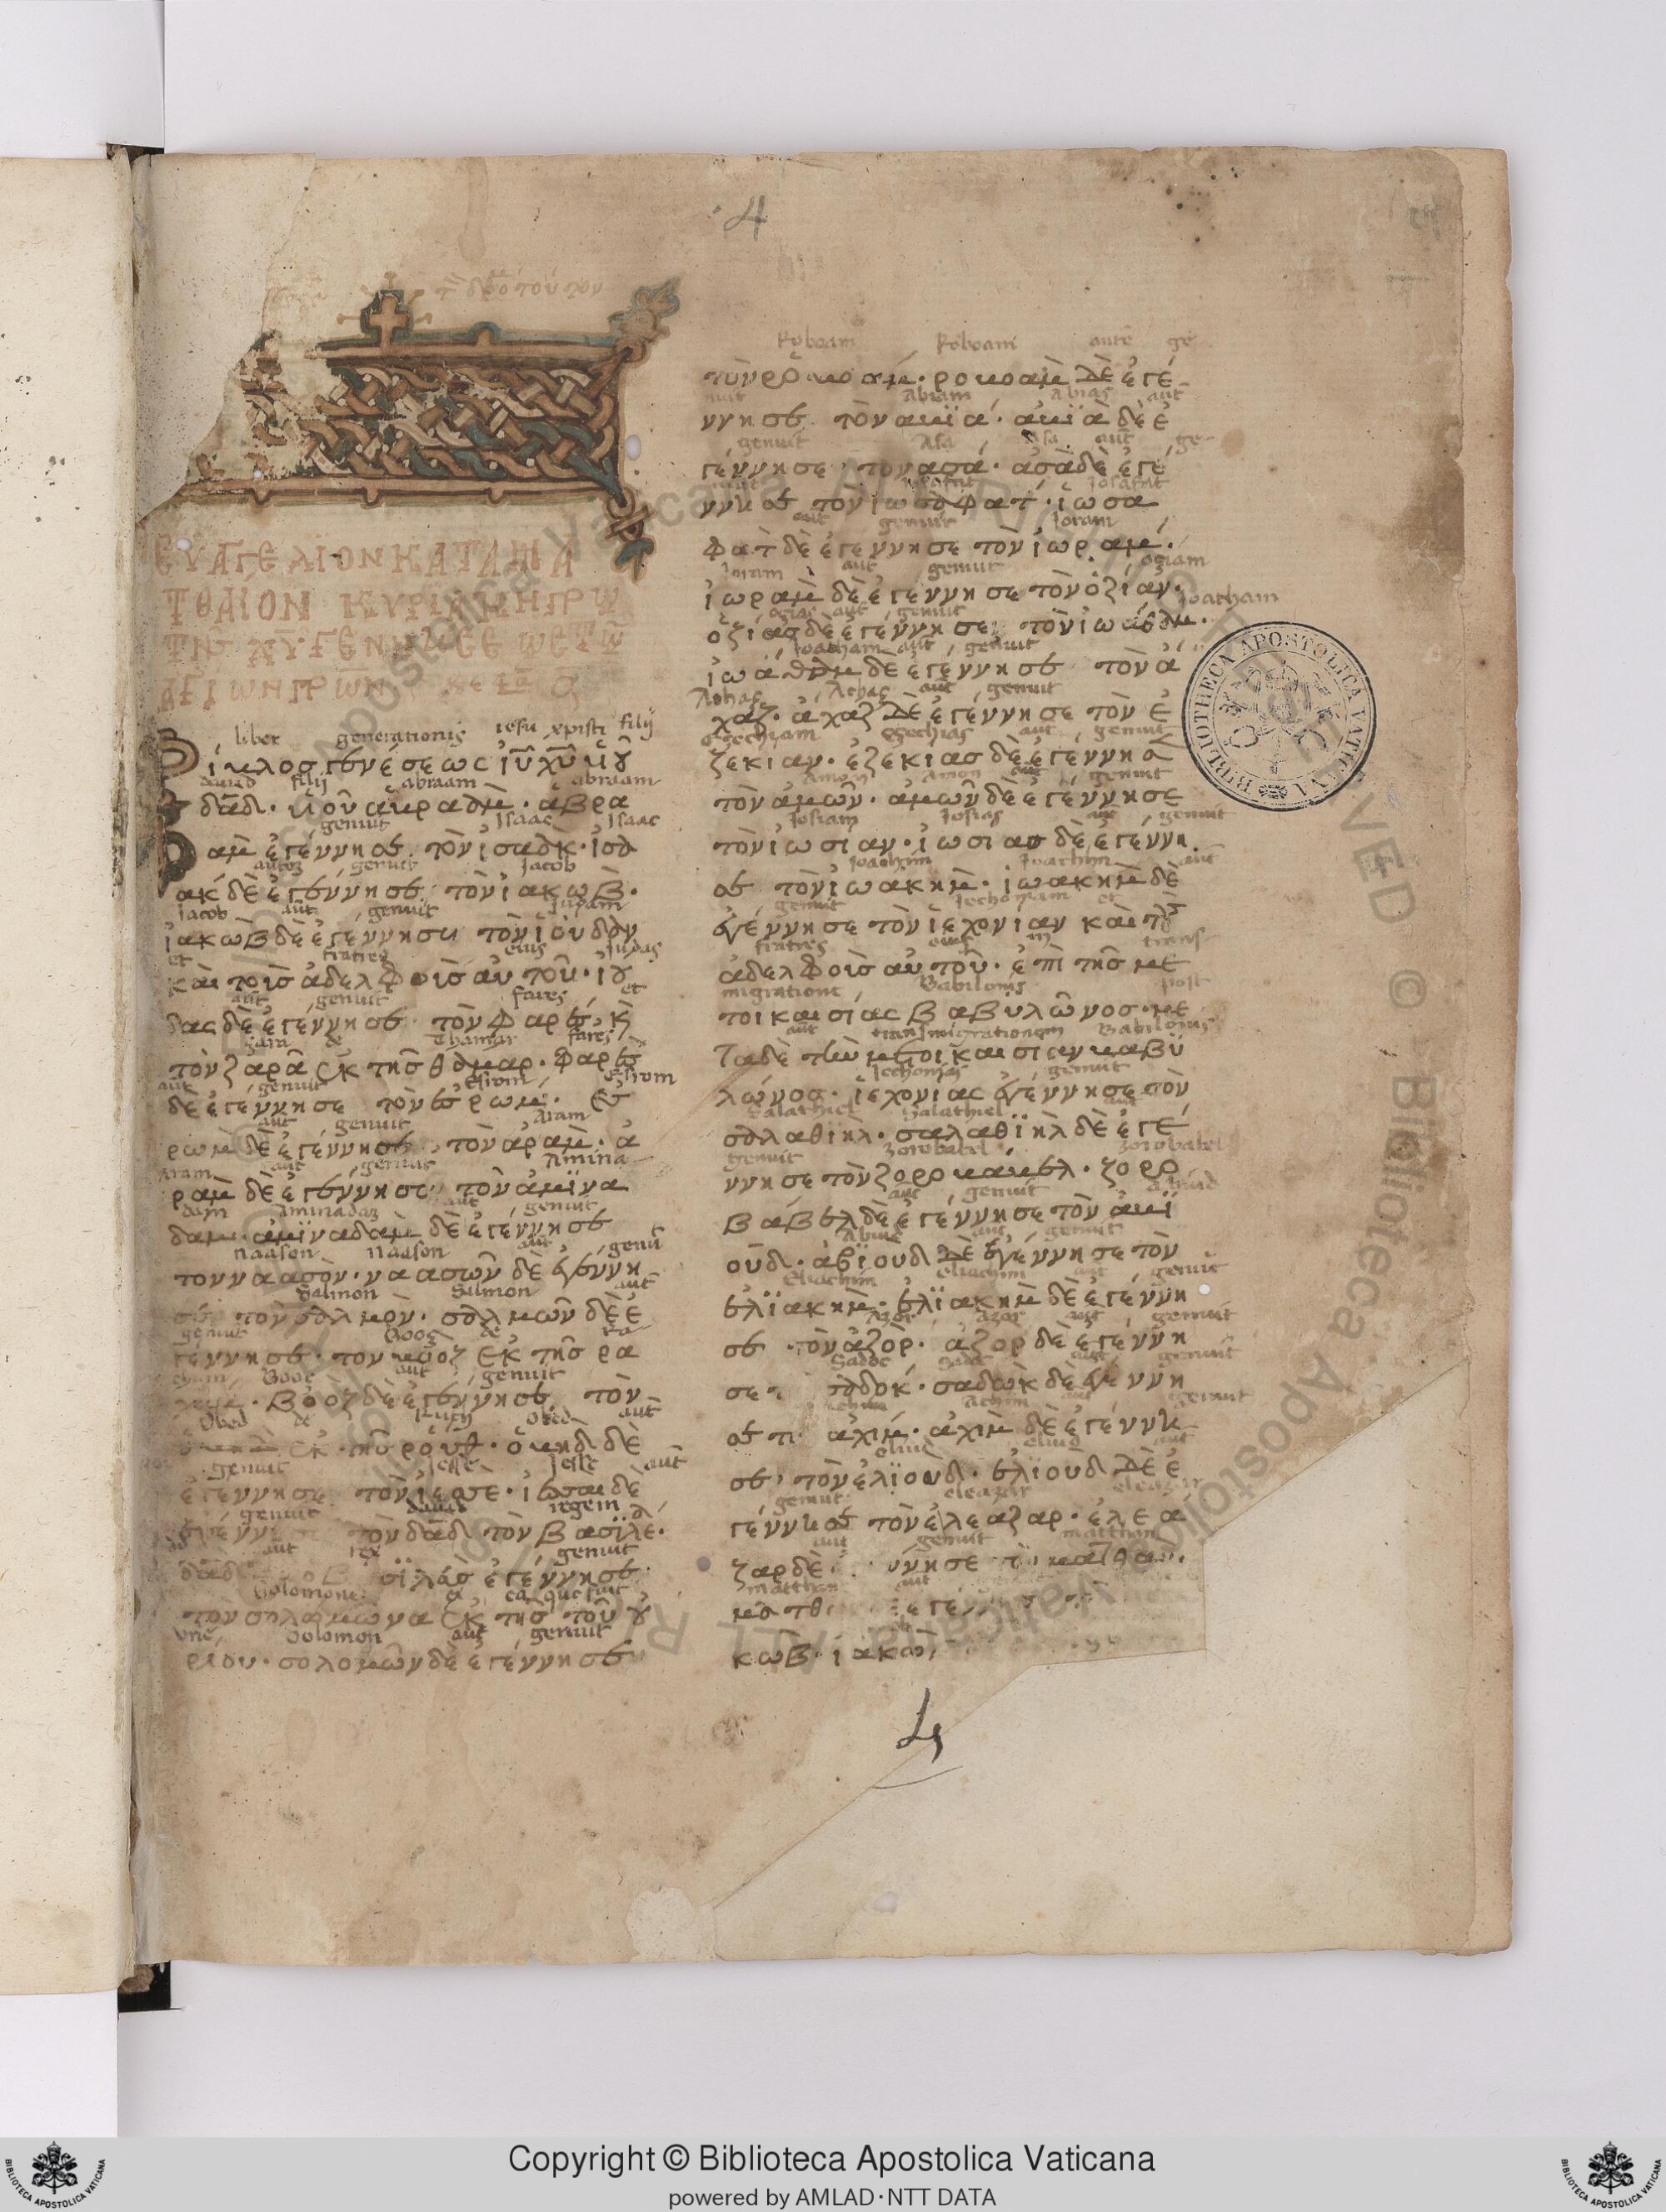 4
ΕΥΑΓΓΕΛΙΟΝ ΚΑΤΑ ΜΑ
ΤΘΑΙΟΝ ΚΥΡΙΑΚΗ ΠΡΟ
liber generationis iesu xpisti filij
Βίβλος γενέσεως ἰῦ χῦ ὑοῦ
david filij abraam abraam
δᾱδ. ὑιοῦ ἀβραὰμ. ἀβρα
genuit Isaac Isaac
ἀμ ἐγέννησε τὸν ἰσαὰκ. ἰσὰ
autez genuit Jacob
ακ δὲ ἐγέννησε τὸν ἰακωβ.
Jacob aut genuit Judam
ἰακὼβ δὲ ἐγέννησε τὸν ἰούδαν
et fratres eius Judas
καὶ τοῖς ἀδελφοῖς αὐτοῦ. ἰού
aut genuit fares et
δας δὲ ἐγέννησε τὸν φαρὲς κὶ
Zara de Thamar fares
τὸν ζαρὰ ἐκ τῆς θάμαρ. φαρὲς
aut genuit Esrom Esrom
δὲ ἐγέννησε τὸν ἐσρώμ. ἐσ
aut genuit Aram
ρωμ δὲ ἐγέννησε τὸν ἀράμ. ἀ
Aram aut genuit Amina
ραμ δὲ ἐγέννησε τὸν ἀμϊνα
dam Aminadaz aut genuit
δαμ. ἀμϊναδαμ δὲ ἐγέννησε
naason naason aut genu
τον ναασὸν. ναασὼν δὲ ἐγέννη
Salmon Salmon aut
σε τὸν σαλμὸν. σαλμὼν δὲ ἐ
genuit Booz de Ra
γέννησε τὸν βοὸζ ἐκ τῆς ρα
cham Booz aut genuit
βοὸζ δὲ ἐγέννησε τὸν
Obed de Ruth Obed aut
ἐκ τῆς ροὺθ. ὀβὴδ δὲ
genuit Jesse Jesse aut
ἐγέννησε τὸν ἰεσσὲ. ἰεσσαὶ δὲ
genuit david regem
τὸν δᾱδ τὸν βασϊλέ.
aut rex genuit
δᾱδ ὁ βασϊλὰς ἐγέννησε
Solomone ea que fuit
τὸν σολομῶνα ἐκ τῆς τοῦ οὐ
Solomon aut genuit
ρίου. σολομὼν δὲ ἐγέννησε
Roboam Roboam autē ge
τὸν ροβοάμ. ροβοὰμ δὲ ἐγέ
nuit Abiam Abias aut
ννησε τὸν αβϊά. ἀβϊὰ δὲ ἐ
genuit Asa Asa aut ge-
γέννησε τὸν ασά. ἀσὰ δὲ ἐγέ
Josafat Josafat
ννησε τὸν ἰωσαφατ. ἰωσα
aut genuit Joram
φὰτ δὲ ἐγέννησε τὸν ἰωραμ.
Joram aut genuit oziam
ἰωραμ δὲ ἐγέννησε τὸν ὀζίαν.
ozias aut genuit Joatham
ὀζίας δὲ ἐγέννησε τὸν ἰωάθαμ.
Joatham aut genuit
ἰωάθαμ δὲ ἐγέννησε τὸν ἀ
Achaz Achaz aut genuit
χαζ. ἀχαζ δὲ ἐγέννησε τὸν ἐ
ezechiam ezechias aut genuit
ζεκιαν. ἐζεκιας δὲ ἐγέννησ
Amon Amon aut genuit
τὸν ἀμῶν. ἀμῶν δὲ ἐγέννησε
Josiam Josias aut genuit
τὸν ἰωσιαν. ἰωσιας δὲ ἐγέννη
Joachim Joachim aut
σε τὸν ἰωακημ. ἰωακημ δὲ
genuit Jechoniam et
ἐγέννησε τὸν ἰεχονιαν καὶ τοὺς
fratres eius in trans
ἀδελφοὶς αὐτοῦ. ἐπὶ τῆς με
migratione Babilonis post
τοικαισίας βαβυλῶνος. με
aut transmigrationem Babilonis
τα δὲ τὴν μετοικαισίαν βαβυ
Jechonias genuit
λῶνος. ἰεχονίας ἐγέννησε τὸν
Salathiel Salathiel aut
σαλαθϊηλ. σαλαθϊὴλ δὲ ἐγέ
genuit zorobabel zorobabel
ννησε τὸν ζοροβάβελ. ζορο
aut genuit abiud
βάβελ δὲ ἐγέννησε τὸν ἀβϊ
Abiud aut genuit
οῦδ. ἀβϊοὺδ δὲ ἐγέννησε τὸν
eliachim eliachim aut genuit
ἐλϊακημ. ἐλϊακημ δὲ ἐγέννη
Azor Azor aut genuit
σε τὸν ἀζὸρ. ἀζορ δὲ ἐγέννη
Sadoc Sadoc aut genuit
σε σαδοκ. σαδὼκ δὲ ἐγέννη
achim Achim aut genuit
σε τ ἀχίμ. ἀχὶμ δὲ ἐγέννη
eliud eliud aut
σε τὸν ἐλϊοὺδ. ἐλϊοὺδ δὲ ἐ
genuit eleazar eleazar
γέννησε τὸν ἐλεαζαρ. ἐλεα
aut genuit matthan
ζαρ δὲ ννησε τὸν ματθαν.
matthan aut
ματθ
κωβ. ἰακω
BIBLIOTHECA APOSTOLICA VATICANA
Copyright © Biblioteca Apostolica Vaticana
powered by AMLAD·NTT DATA